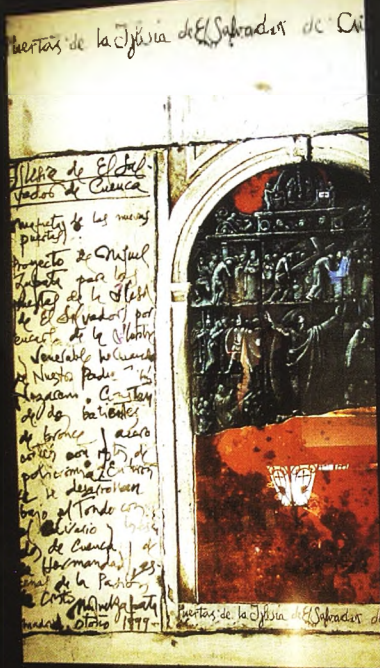 Puertas de la Iglesia de El Salvador de
Iglesia de El Sal-
vador de Cuenca
maqueta de las nuevas
puertas.
Proyecto de Miguel
Zapata para las
puertas de la Iglesia
de El Salvador, por
encargo de la
Venerable
de Nuestro Padre
Nazareno. Constan
de dos batientes
de bronce y acero
con
policromía
se desarrollan
bajo el Tondo con
el Calvario
de Cuenca, y
Hermandad, es-
cenas de la Pasión
de Cristo.
Miguel Zapata
Madrid, otoño 1999-
Puertas de la Iglesia de El Salvador de